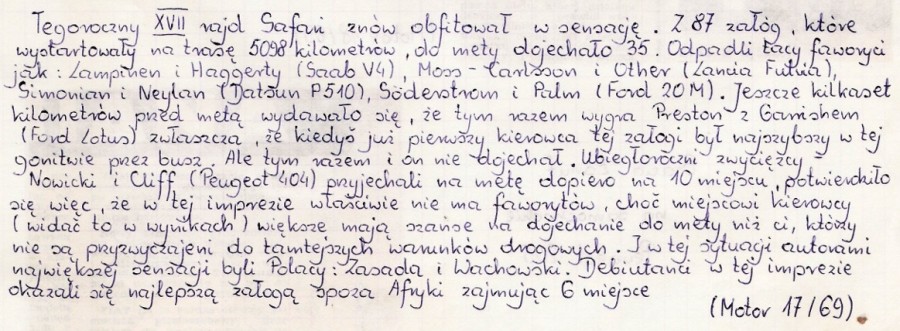 Tegoroczny XVII rajd Safari znów obfitował w sensację. Z 87 załóg, które
wystartowały na trasę 5098 kilometrów, do mety dojechało 35. Odpadli tacy faworyci
jak: Lampinen i Haggerty (Saab V4), Moss-Carlsson i Other (Lancia Fulvia),
Simonian i Neylan (Datsun P510), Söderstrom i Palm (Ford 20M). Jeszcze kilkaset
kilometrów przed metą wydawało się, że tym razem wygra Preston z Garrishem
(Ford Lotus) zwłaszcza, że kiedyś już pierwszy kierowca tej załogi był najszybszy w tej
gonitwie przez busz. Ale tym razem i on nie dojechał. Ubiegłoroczni zwycięzcy -
Nowicki i Cliff (Peugeot 404) przyjechali na metę dopiero na 10 miejscu, potwierdziło
się więc, że w tej imprezie właściwie nie ma faworytów, choć miejscowi kierowcy
(widać to w wynikach) większe mają szanse na dojechanie do mety niż ci, którzy
nie są przyzwyczajeni do tamtejszych warunków drogowych. I w tej sytuacji autorami
największej sensacji byli Polacy: Zasada i Wachowski. Debiutanci w tej imprezie
okazali się najlepszą załogą spoza Afryki zajmując 6 miejsce
(Motor 17/69).